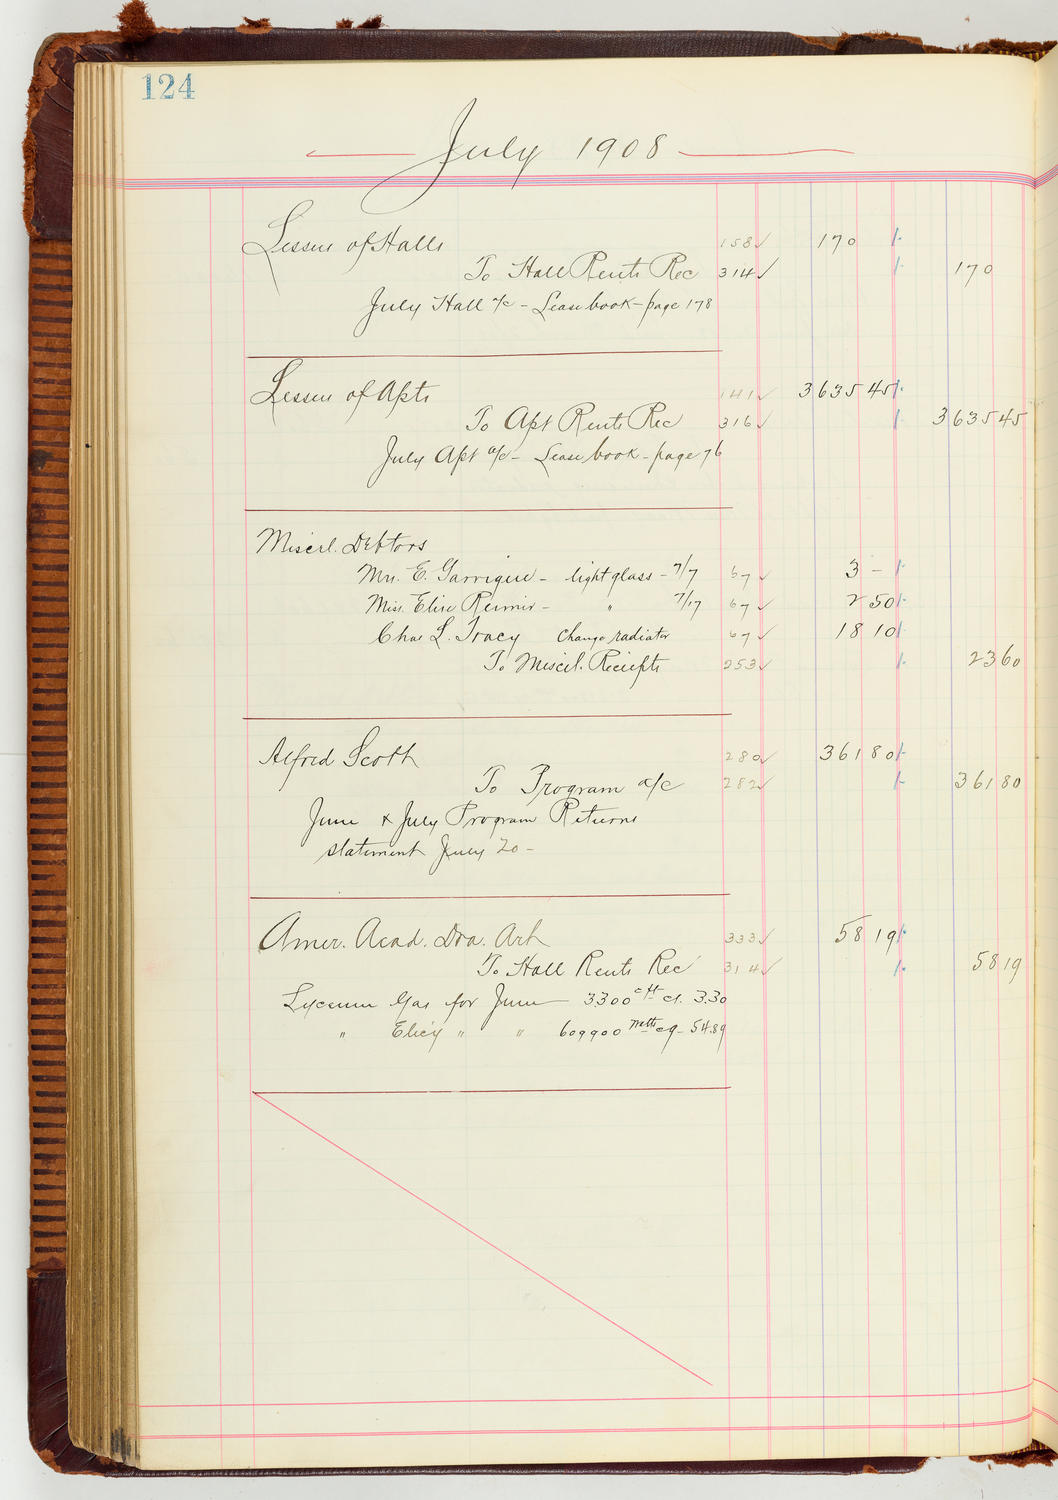 124
July 1908
Lessee of Halls 158 ✓ 170
To Hall Rents Rec 314 ✓ 170
July Hall a/c - Lease book - page 178
Lessee of Apts 141 ✓ 3635 45
To Apt Rents Rec 316 ✓ 3635 45
July Apt a/c - Lease book - page 76
Miscel. Debtors
Mrs. E. Garrigue - light glass - 7/7 67 ✓ 3 -
Miss. Elise Reimer - " 7/17 67 ✓ 2 50
Chas L. Tracy Change radiator 67 ✓ 18 10
To Miscel. Reciepts 253 ✓ 23 60
Alfred Scott 280 ✓ 361 80
To Program a/c 282 ✓ 361 80
June & July Program Returns
statement July 20 -
Amer. Acad. Dra. Art 333 ✓ 58 19
To Hall Rents Rec 314 ✓ 58 19
Lyceum Gas for June 3300 cft c1. 3.30
" Elec'y " " 609900 Watts c9 - 54.89